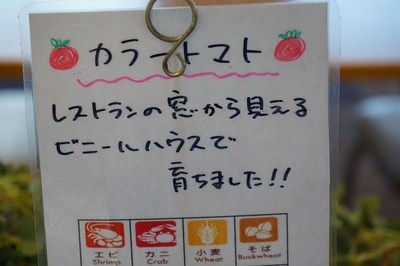 カラートマト
レストランの窓から見える
ビニールハウスで
育ちました!!
エビ カニ 小麦 そば
Shrimp Crab Wheat Buckwheat